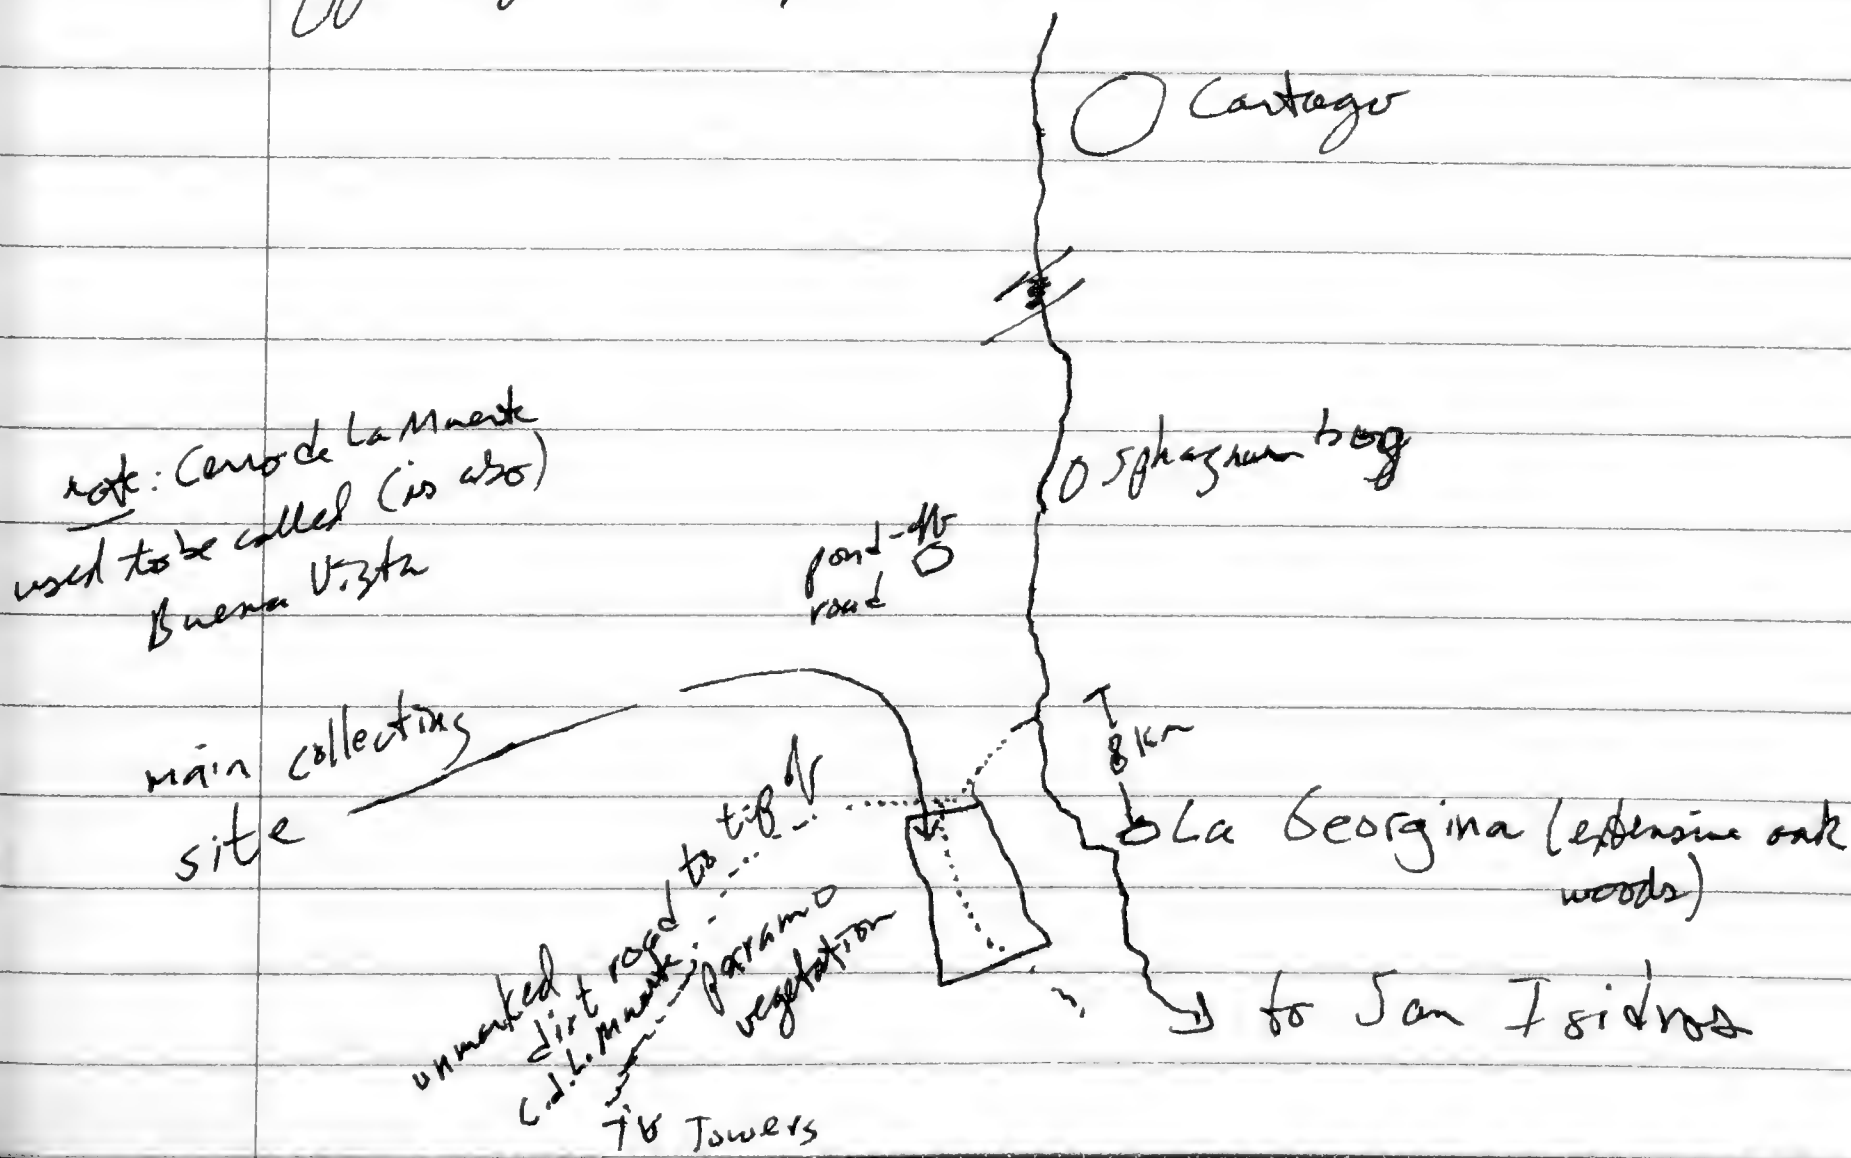 Cartago
Sphagnum bog
note: Cerro de La Muerte
used to be called (is also)
Buena Vista
pond - off
road
main collecting
site
8 km
La Georgina (extensive oak
woods)
unmarked
dirt road to tip of
C.d.L. Muerte
paramo
vegetation
TV Towers
to San Isidros